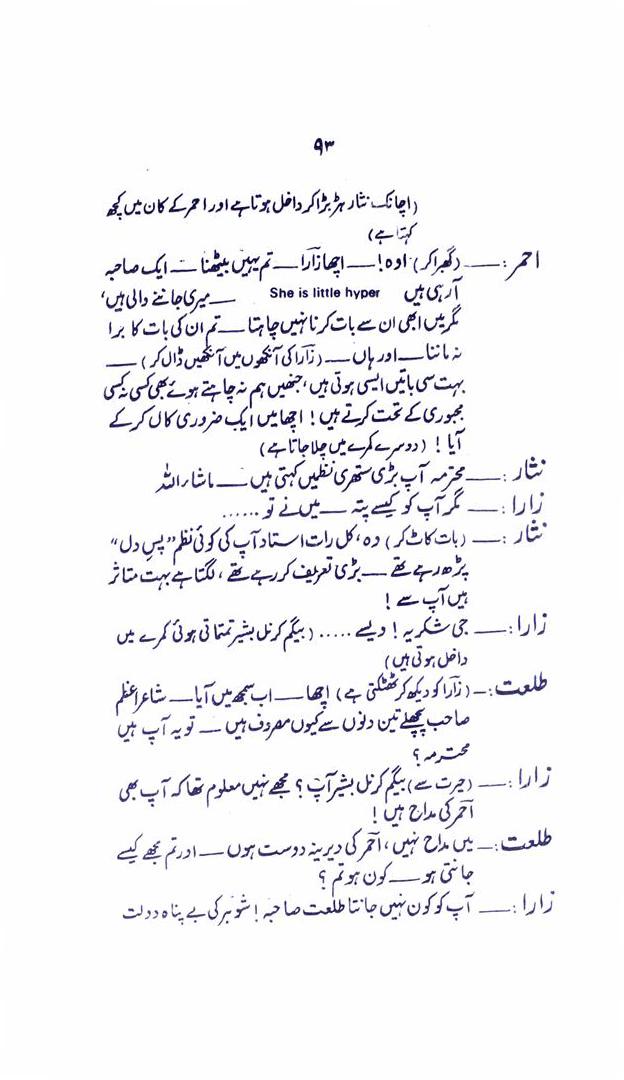 ۹۳
(اچانک نثار ہڑبڑا کر داخل ہوتا ہے اور احمر کے کان میں کچھ
کہتا ہے)
احمر :— (گھبرا کر) اوہ! — اچھا زارا — تم یہیں بیٹھنا — ایک صاحبہ
آ رہی ہیں She is little hyper — میری جاننے والی ہیں'
مگر میں ابھی ان سے بات کرنا نہیں چاہتا — تم ان کی بات کا برا
نہ ماننا — اور ہاں — (زارا کی آنکھوں میں آنکھیں ڈال کر) —
بہت سی باتیں ایسی ہوتی ہیں، جنھیں ہم نہ چاہتے ہوئے بھی کسی نہ کسی
مجبوری کے تحت کرتے ہیں! اچھا میں ایک ضروری کال کر کے
آیا! (دوسرے کمرے میں چلا جاتا ہے)
نثار :— محترمہ آپ بڑی ستھری نظمیں کہتی ہیں — ماشاء اللہ
زارا :— مگر آپ کو کیسے پتہ — میں نے تو ......
نثار :— (بات کاٹ کر) وہ، کل رات استاد آپ کی کوئی نظم "پسِ دل"
پڑھ رہے تھے — بڑی تعریف کر رہے تھے، لگتا ہے بہت متاثر
ہیں آپ سے!
زارا :— جی شکریہ! ویسے ..... (بیگم کرنل بشیر تمتماتی ہوئی کمرے میں
داخل ہوتی ہیں)
طلعت :— (زارا کو دیکھ کر ٹھٹکتی ہے) اچھا — اب سمجھ میں آیا — شاعرِ اعظم
صاحب پچھلے تین دنوں سے کیوں مصروف ہیں — تو یہ آپ ہیں
محترمہ؟
زارا :— (حیرت سے) بیگم کرنل بشیر آپ؟ مجھے نہیں معلوم تھا کہ آپ بھی
احمر کی مداح ہیں!
طلعت :— میں مداح نہیں، احمر کی دیرینہ دوست ہوں — اور تم مجھے کیسے
جانتی ہو — کون ہو تم؟
زارا :— آپ کو کون نہیں جانتا طلعت صاحبہ! شوہر کی بے پناہ دولت